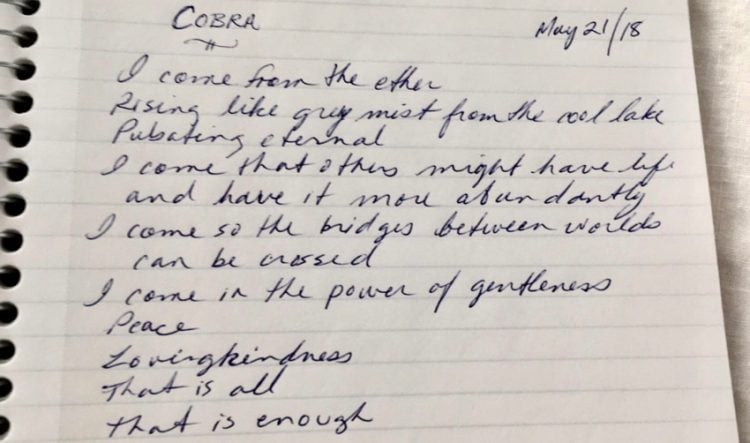 COBRA
May 21/18
I come from the ether
Rising like grey mist from the cool lake
Pulsating eternal
I come that others might have life
and have it more abundantly
I come so the bridges between worlds
can be crossed
I come in the power of gentleness
Peace
Lovingkindness
That is all
that is enough